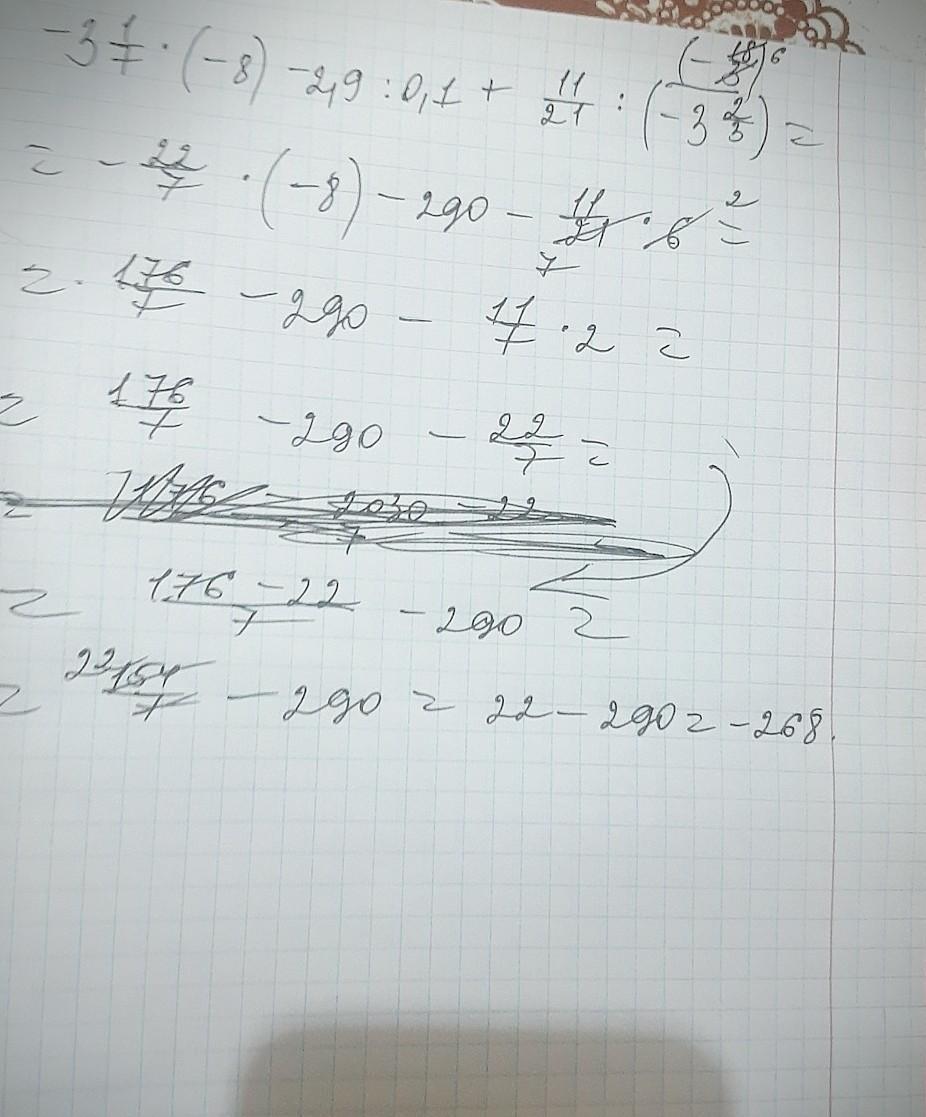 -3 1/7 · (-8) - 2,9 : 0,1 + 11/21 : (-3 2/3) (-18/3) 6 =
= - 22/7 · (-8) - 290 - 11/21 · 6 = 2
7
= 176/7 - 290 - 11/7 · 2 =
= 176/7 - 290 - 22/7 =
= 176 - 2030 - 22 / 7
= 176 - 22 / 7 - 290 =
= 22 154/7 - 290 = 22 - 290 = -268.